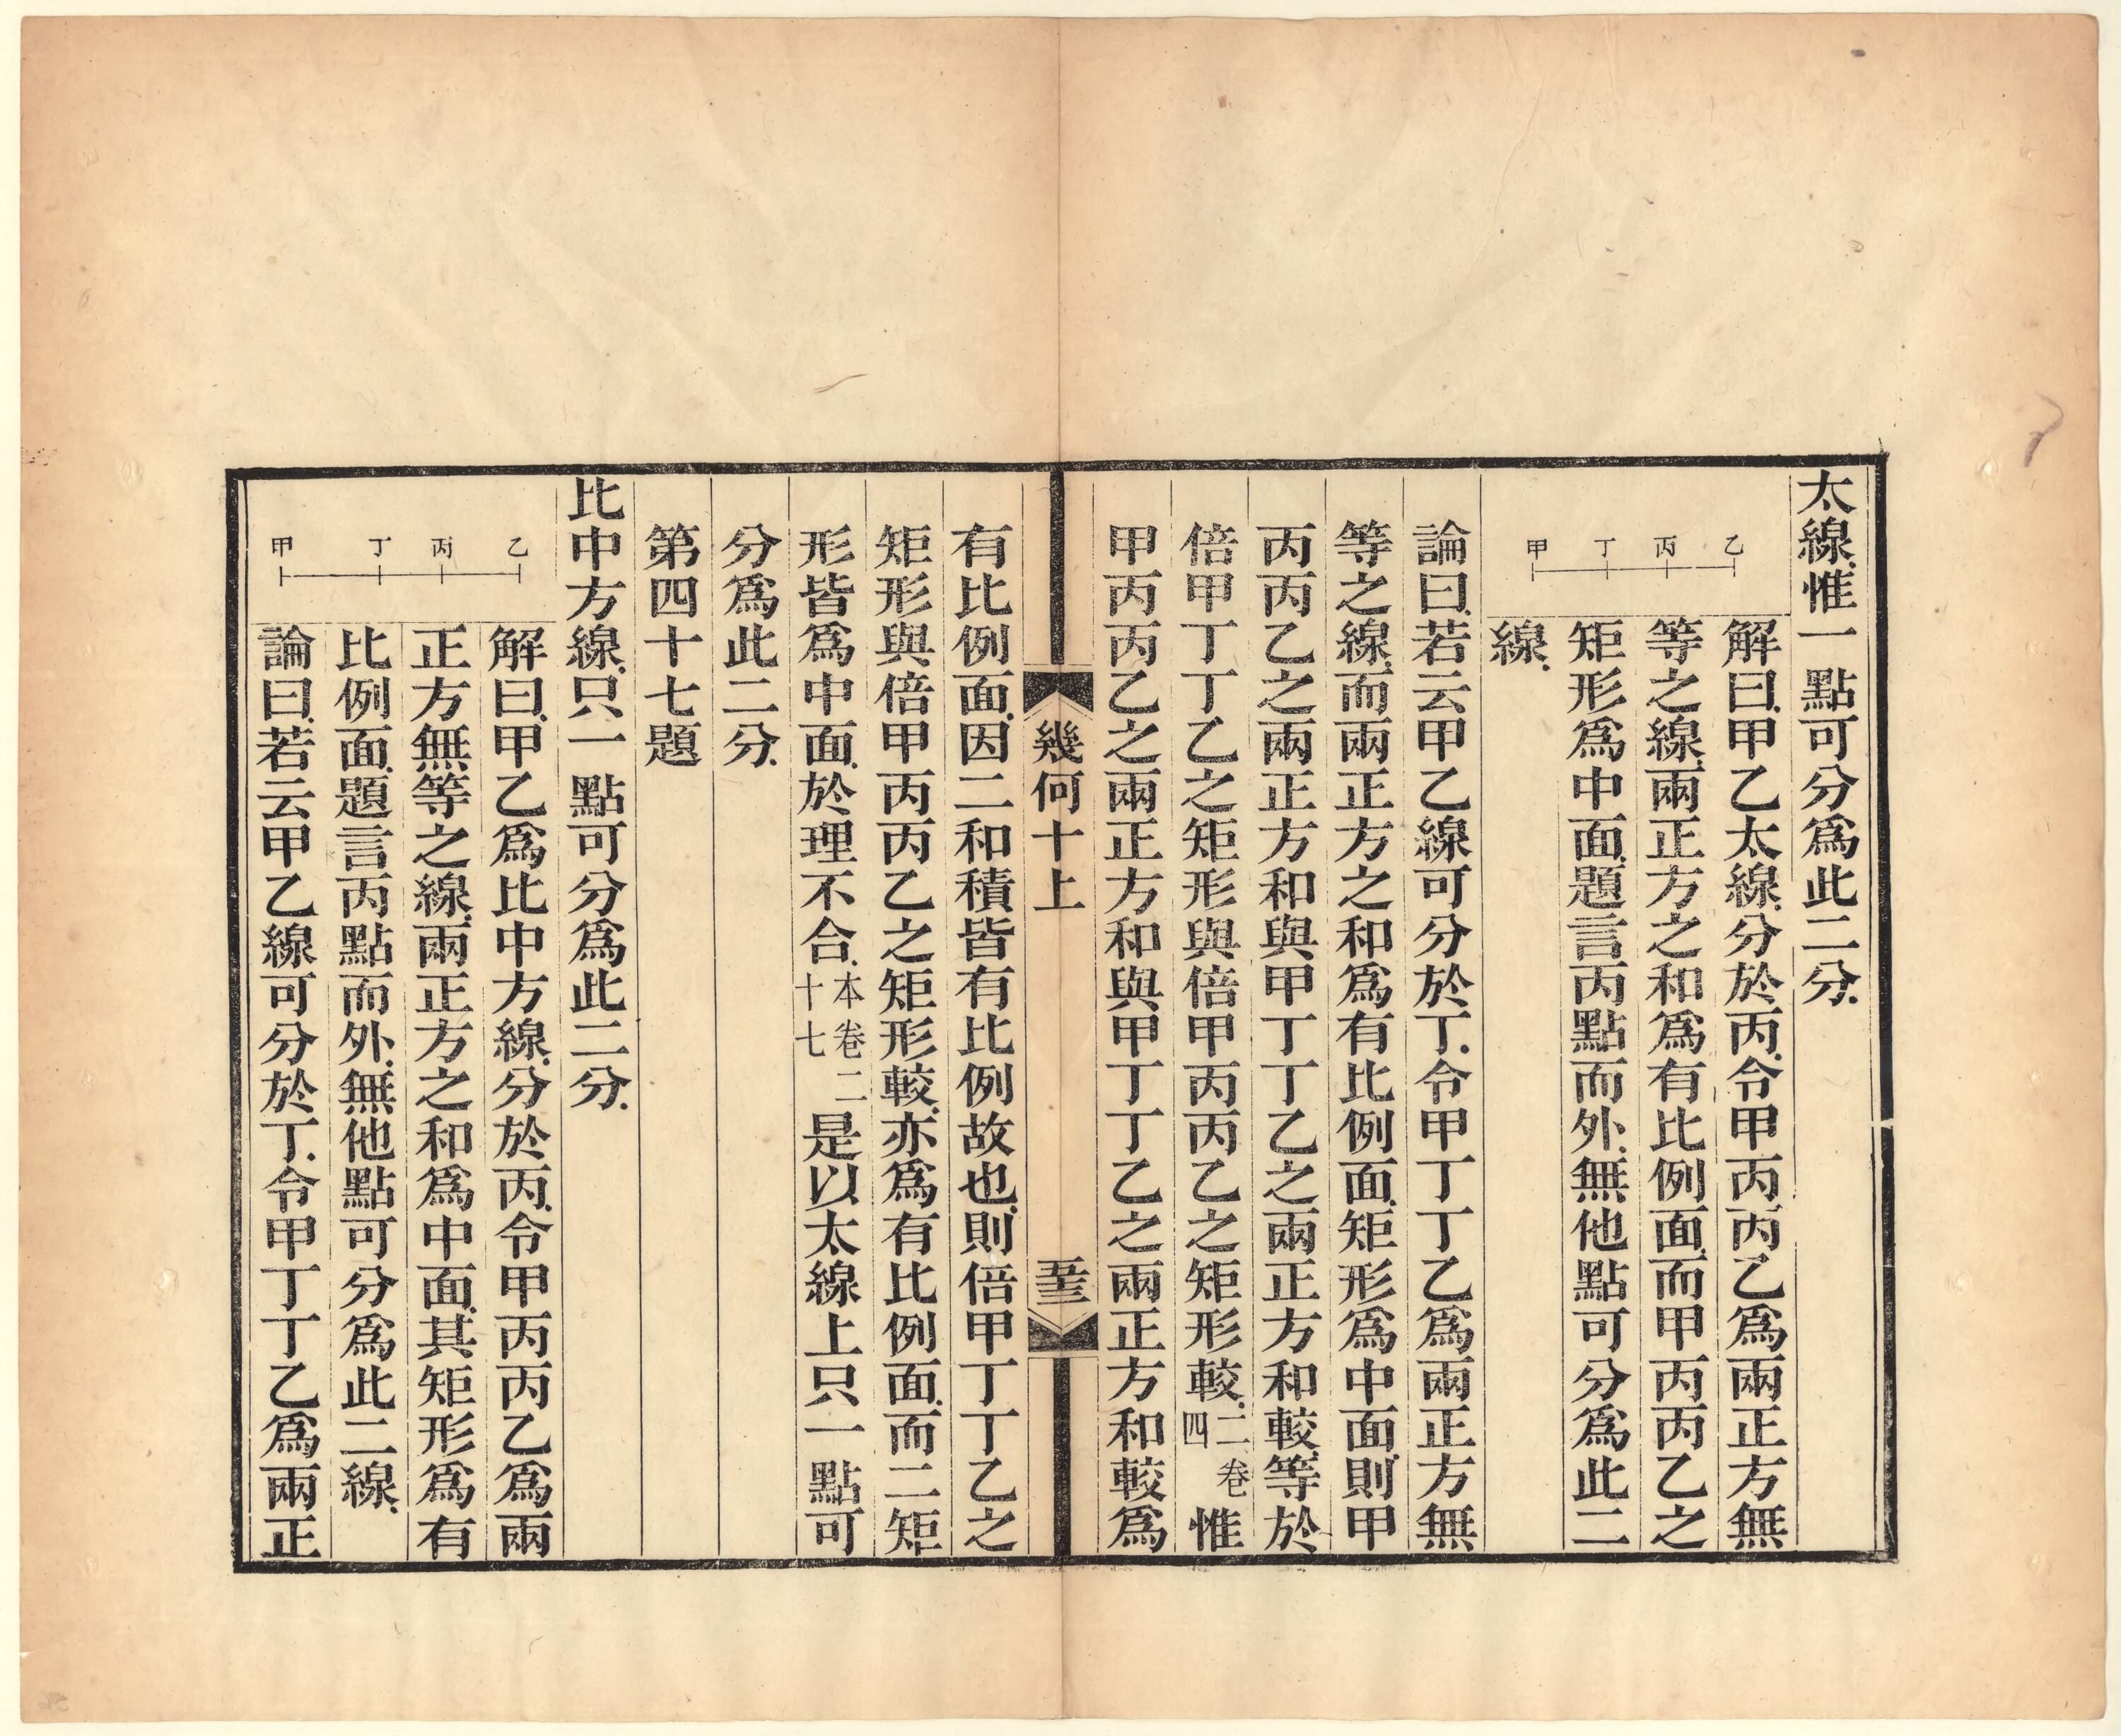 太線惟一點可分爲此二分
乙 丙 丁 甲
解曰甲乙太線分於丙令甲丙丙乙爲兩正方無
等之線兩正方之和爲有比例面而甲丙丙乙之
矩形爲中面題言丙點而外無他點可分爲此二
線
論曰若云甲乙線可分於丁令甲丁丁乙爲兩正方無
等之線而兩正方之和爲有比例面矩形爲中面則甲
丙丙乙之兩正方和與甲丁丁乙之兩正方和較等於
倍甲丁丁乙之矩形與倍甲丙丙乙之矩形較二卷四惟
甲丙丙乙之兩正方和與甲丁丁乙之兩正方和較爲
幾何十上 五十三
有比例面因二和積皆有比例故也則倍甲丁丁乙之
矩形與倍甲丙丙乙之矩形較亦爲有比例面而二矩
形皆爲中面於理不合本卷二十七是以太線上只一點可
分爲此二分
第四十七題
比中方線只一點可分爲此二分
乙 丙 丁 甲
解曰甲乙爲比中方線分於丙令甲丙丙乙爲兩
正方無等之線兩正方之和爲中面其矩形爲有
比例面題言丙點而外無他點可分爲此二線
論曰若云甲乙線可分於丁令甲丁丁乙爲兩正